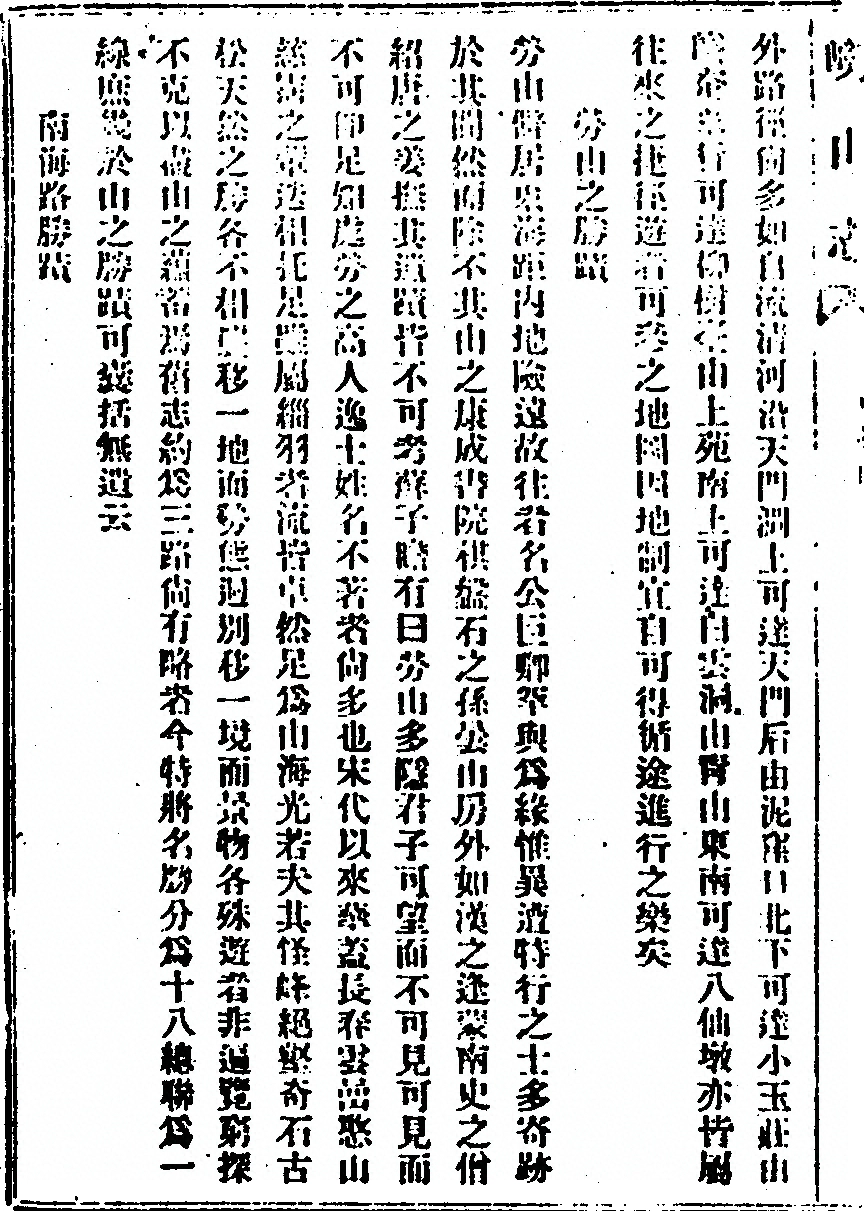 外路徑尙多如自流淸河沿天門澗上可達天門后由泥窪口北下可達小玉莊由
東行可達柳樹臺由上苑南上可達白雲洞由窰山東南可達八仙墩亦皆屬
往來之捷徑遊者可參之地圖因地制宜自可得循途進行之樂矣
勞山之勝蹟
勞山僻居東海距內地險遠故往者名公巨卿罕與爲緣惟異遒特行之士多寄跡
於其間然而除不其山之康成書院棋盤石之孫曇山房外如漢之逢蒙南史之僧
紹唐之姜撫其遺蹟皆不可考蘇子瞻有曰勞山多隱君子可望而不可見可見而
不可卽足知處勞之高人逸士姓名不著者尙多也宋代以來華蓋長春雲巖憨山
諸之輩迭相托足雖屬緇羽者流皆卓然足爲山海光若夫其怪峰絕壑奇石古
松天然之勝各不相襲移一地而勢態迥別移一境而景物各殊遊者非遍覽窮探
不克以盡山之蘊舊志約爲三路尙有略者今特將名勝分爲十八總聯爲一
線庶幾於山之勝蹟可囊括無遺云
南海路勝蹟
山志